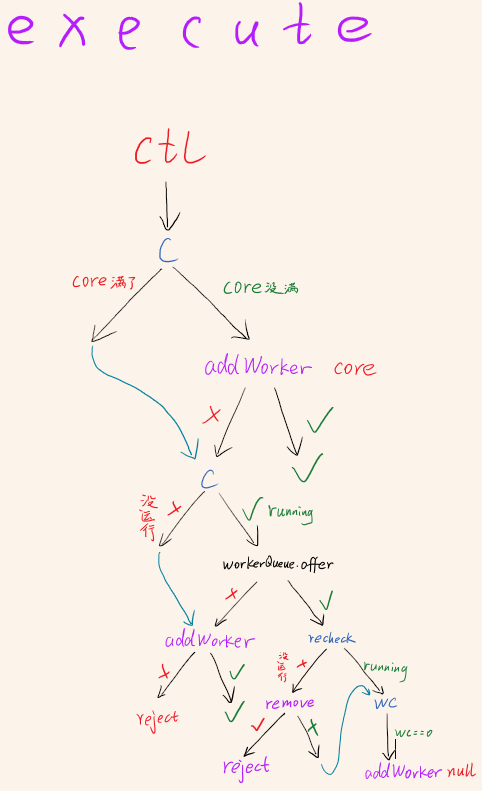 execute
ctL
C
core满了
core没满
addWorker core
C
没运行
running
workerQueue.offer
addWorker
recheck
没运行
running
reject
remove
WC
wc==0
reject
addWorker null